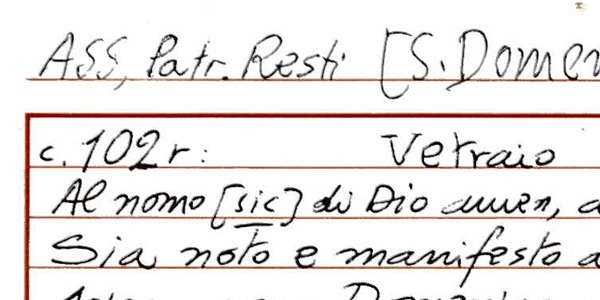 ASS, Patr. Resti [S. Domen
c. 102r: Vetraio
Al nomo [sic] di Dio amen, a
Sia noto e manifesto a